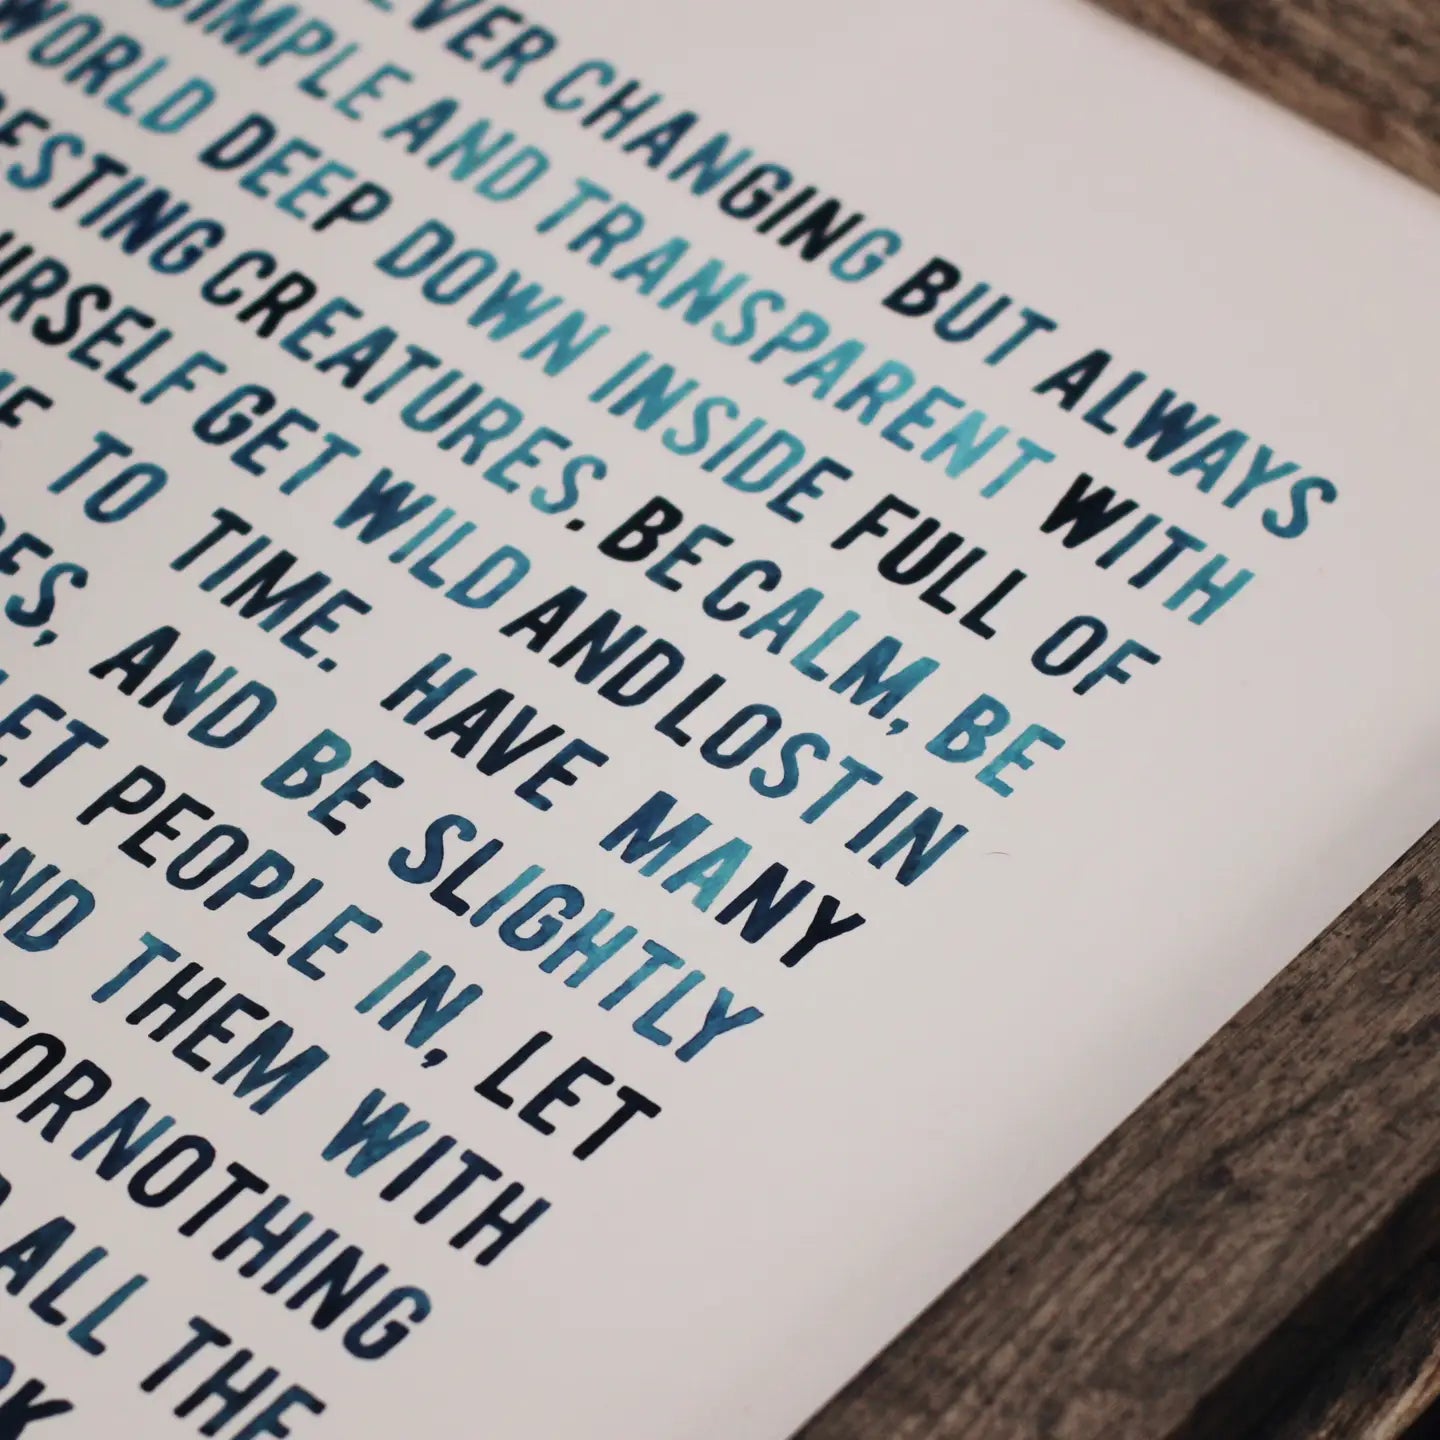 EVER CHANGING BUT ALWAYS
SIMPLE AND TRANSPARENT WITH
WORLD DEEP DOWN INSIDE FULL OF
CREATURES. BE CALM, BE
GET WILD AND LOST IN
TO TIME. HAVE MANY
AND BE SLIGHTLY
LET PEOPLE IN, LET
THEM WITH
FOR NOTHING
ALL THE